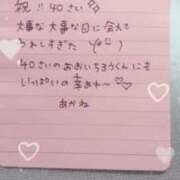 祝!! 40さい
大事な大事な日に会えて
うれしすぎた
40さいのおおいちろうくんにも
いっぱいの幸あれ〜♡♡
あかね